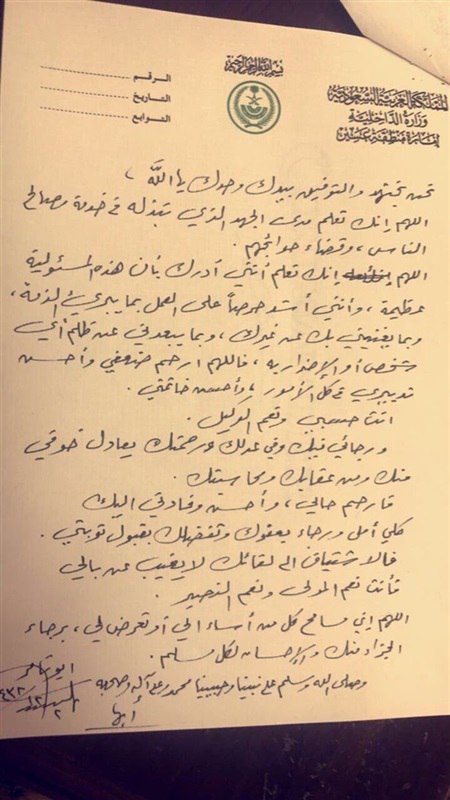 بسم الله الرحمن الرحيم
المملكة العربية السعودية
وزارة الداخلية
إمارة منطقة عسير
الرقم
التاريخ
التوابع
نحن نجتهد والتوفيق بيدك وحدك يا الله ،
اللهم إنك تعلم مدى الجهد الذي نبذله في خدمة مصالح
الناس ، وقضاء حوائجهم .
اللهم إنك تعلم أنني أدرك بأن هذه المسئولية
عظيمة ، وأنني أشد حرصاً على العمل بما يبريء الذمة ،
وبما يغنيني بك عن غيرك ، وبما يبعدني عن ظلم أي
شخص أو الإضرار به ، فاللهم ارحم ضعفي وأحسن
تدبيري في كل الأمور ، وأحسن خاتمتي .
أنت حسبي ونعم الوكيل .
ورجائي فيك وفي عدلك ورحمتك يعادل خوفي
منك ومن عقابك ومحاسبتك .
فارحم حالي ، وأحسن وفادتي إليك
كلي أمل ورجاء بعفوك وتفضلك بقبول توبتي .
فالاشتياق الى لقائك لا يغيب عن بالي
فأنت نعم المولى ونعم النصير .
اللهم إني مسامح كل من أساء الي أو تعرض لي ، برجاء
الجزاء منك والإحسان لكل مسلم .
وصلى الله وسلم على نبينا وحبيبنا محمد وعلى آله وصحبه
أبها